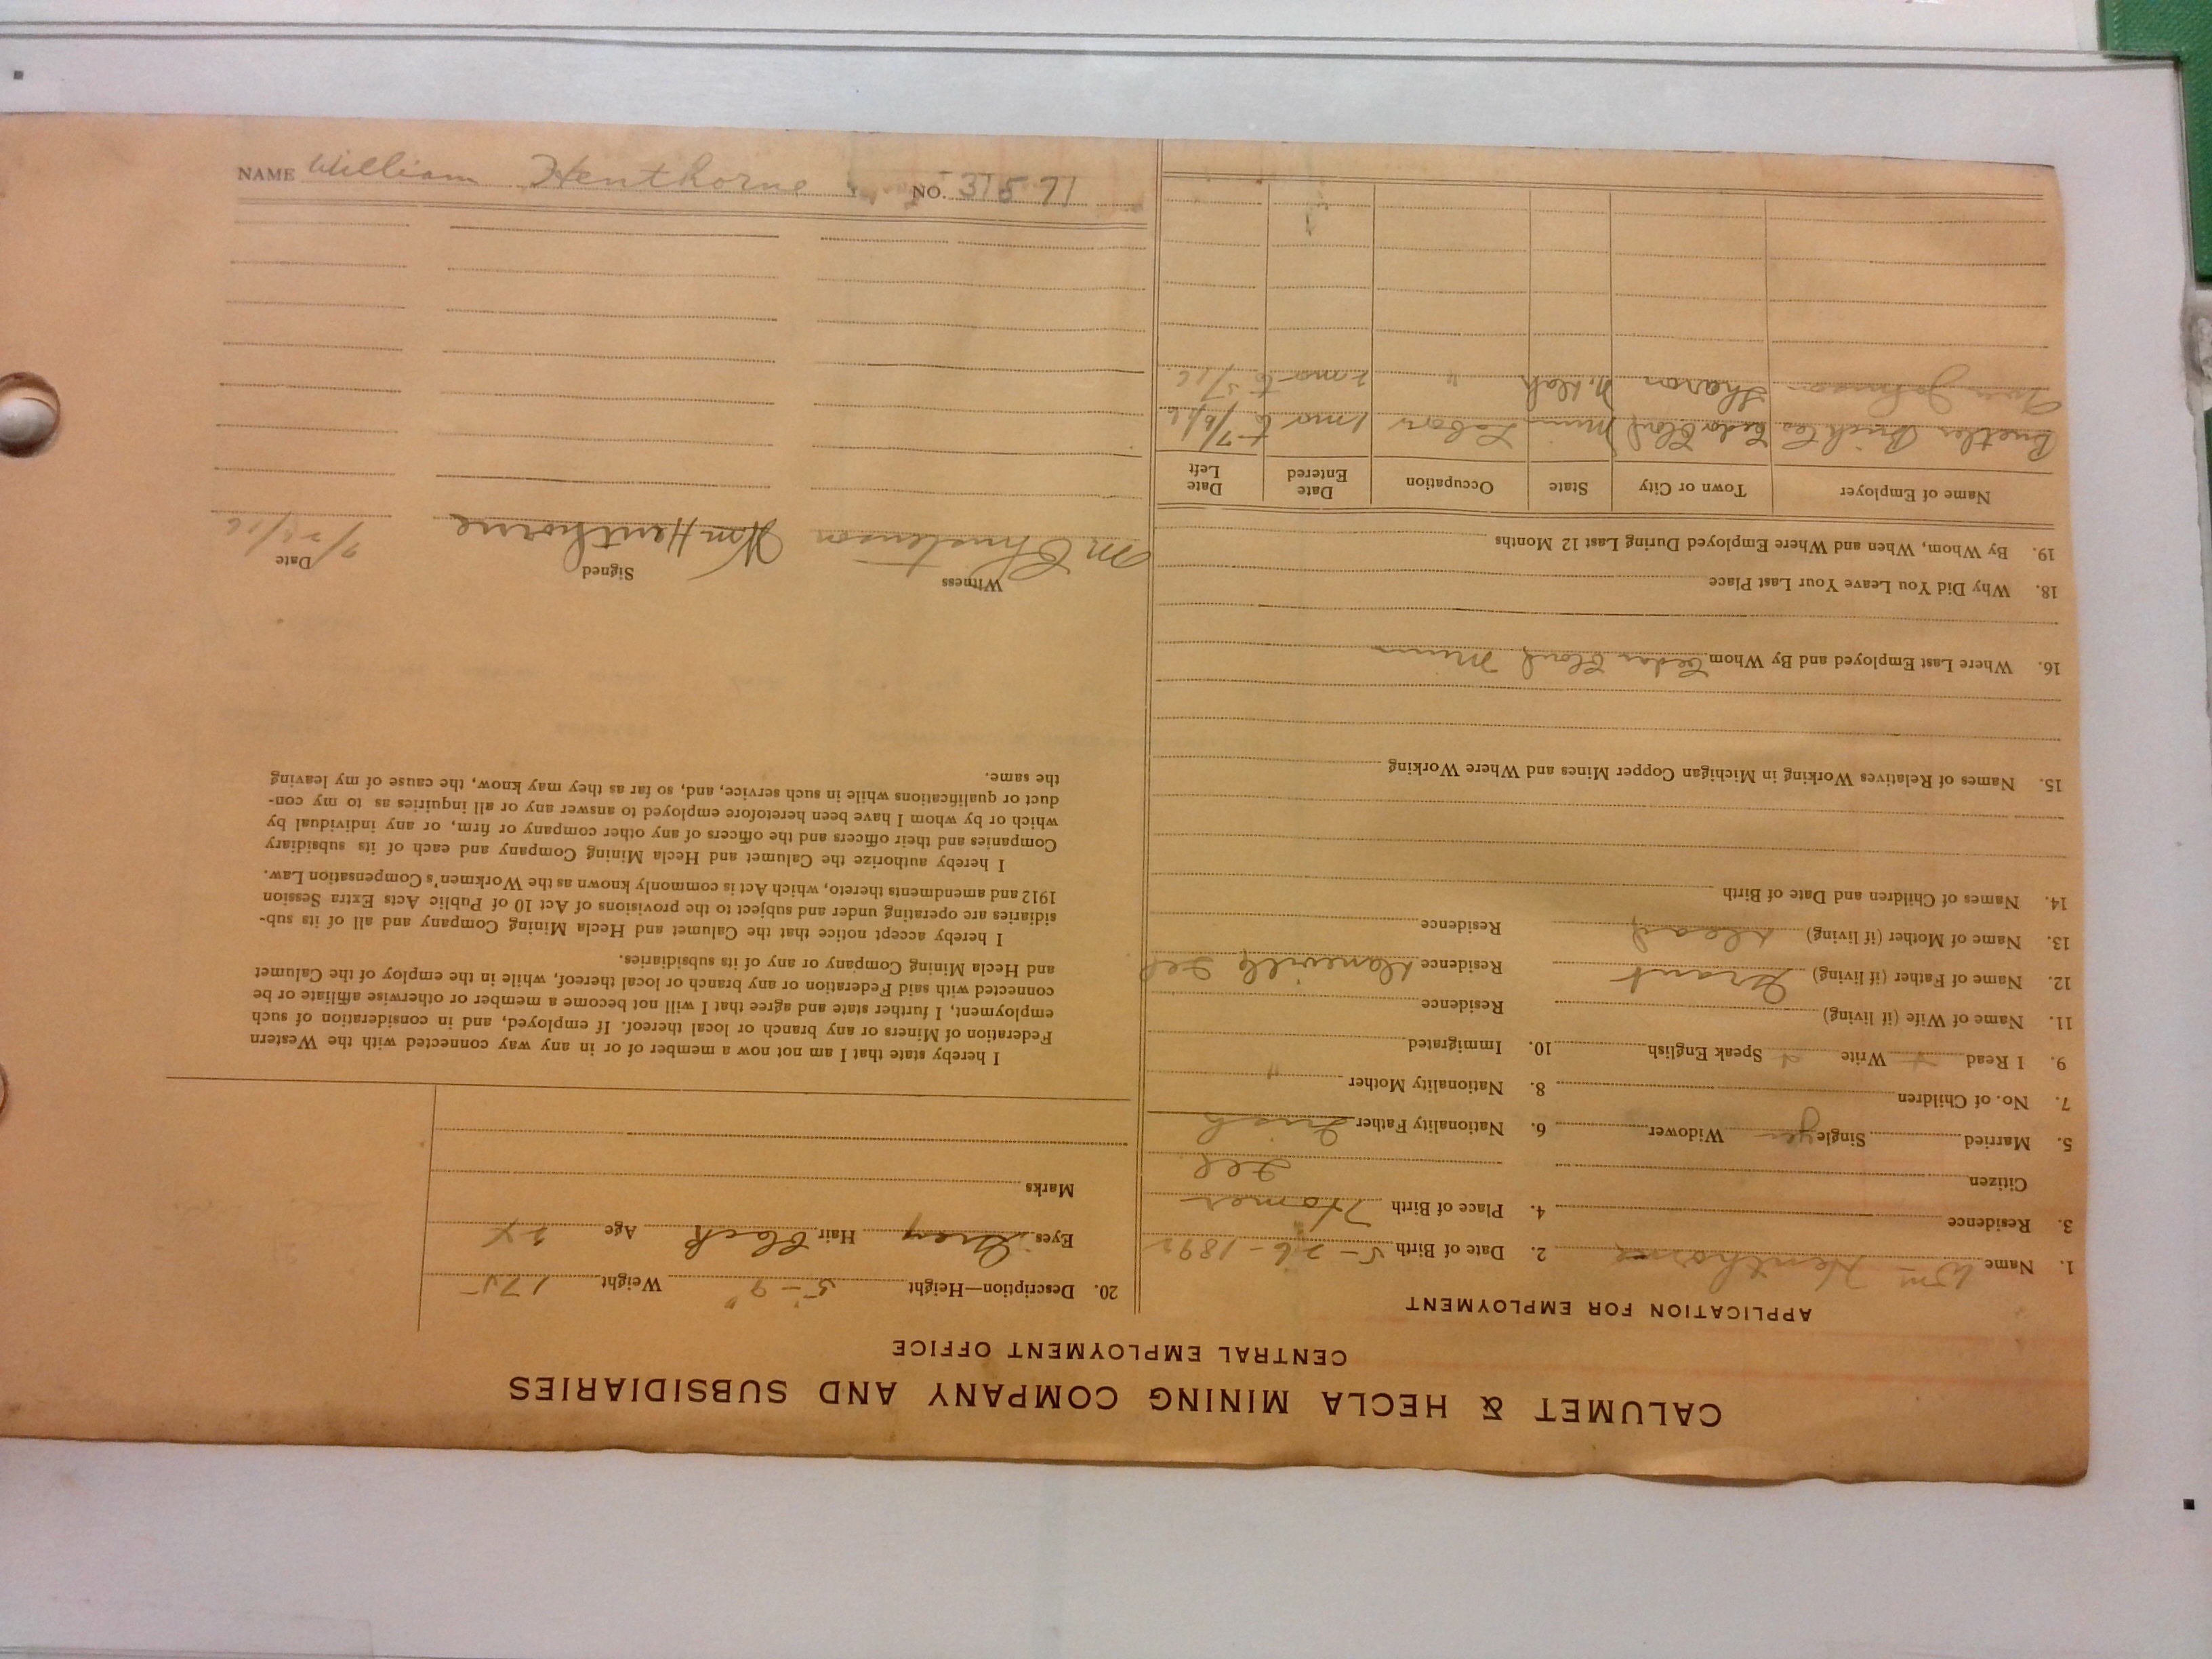 CALUMET & HECLA MINING COMPANY AND SUBSIDIARIES
CENTRAL EMPLOYMENT OFFICE
APPLICATION FOR EMPLOYMENT
1. Name Wm Henthorne 2. Date of Birth 5-26-1892
3. Residence 4. Place of Birth Homer
Citizen Ill
5. Married Single yes Widower 6. Nationality Father Irish
7. No. of Children 8. Nationality Mother "
9. I Read Write Speak English 10. Immigrated
11. Name of Wife (if living) Residence
12. Name of Father (if living) Grant Residence Danville Ill
13. Name of Mother (if living) dead Residence
14. Names of Children and Date of Birth
15. Names of Relatives Working in Michigan Copper Mines and Where Working
16. Where Last Employed and By Whom Minn
18. Why Did You Leave Your Last Place
19. By Whom, When and Where Employed During Last 12 Months
Name of Employer Town or City State Occupation Date Entered Date Left
Butler Co Minn Labor 1 mo to
Johnson Sharon N. Dak " 2 mo to
20. Description—Height 5-9" Weight 175
Eyes Gray Hair Black Age 24
Marks
I hereby state that I am not now a member of or in any way connected with the Western
Federation of Miners or any branch or local thereof. If employed, and in consideration of such
employment, I further state and agree that I will not become a member or otherwise affiliate or be
connected with said Federation or any branch or local thereof, while in the employ of the Calumet
and Hecla Mining Company or any of its subsidiaries.
I hereby accept notice that the Calumet and Hecla Mining Company and all of its sub-
sidiaries are operating under and subject to the provisions of Act 10 of Public Acts Extra Session
1912 and amendments thereto, which Act is commonly known as the Workmen's Compensation Law.
I hereby authorize the Calumet and Hecla Mining Company and each of its subsidiary
Companies and their officers and the officers of any other company or firm, or any individual by
which or by whom I have been heretofore employed to answer any or all inquiries as to my con-
duct or qualifications while in such service, and, so far as they may know, the cause of my leaving
the same.
Witness Signed Date
M Christenson Wm Henthorne
NAME William Henthorne NO. 31571